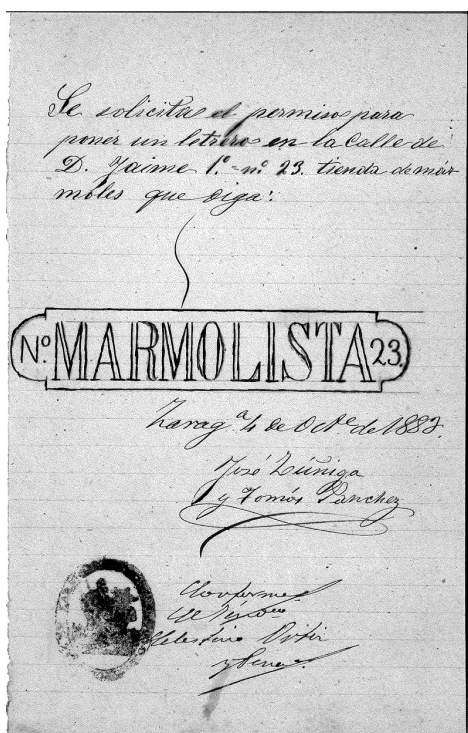 Se solicita el permiso para
poner un letrero en la Calle de
D. Jaime 1.º nº 23. tienda de már-
moles que diga:
Nº MARMOLISTA 23.
Zarag.ª 4 de Oct.e de 1883.
José Zúñiga
y Tomás Sanchez
Conforme